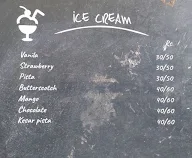 ICE CREAM
₹
Vanila 30/50
Strawberry 30/50
Pista 30/50
Butterscotch 40/60
Mango 40/60
Chocolate 40/60
Kesar pista 40/60